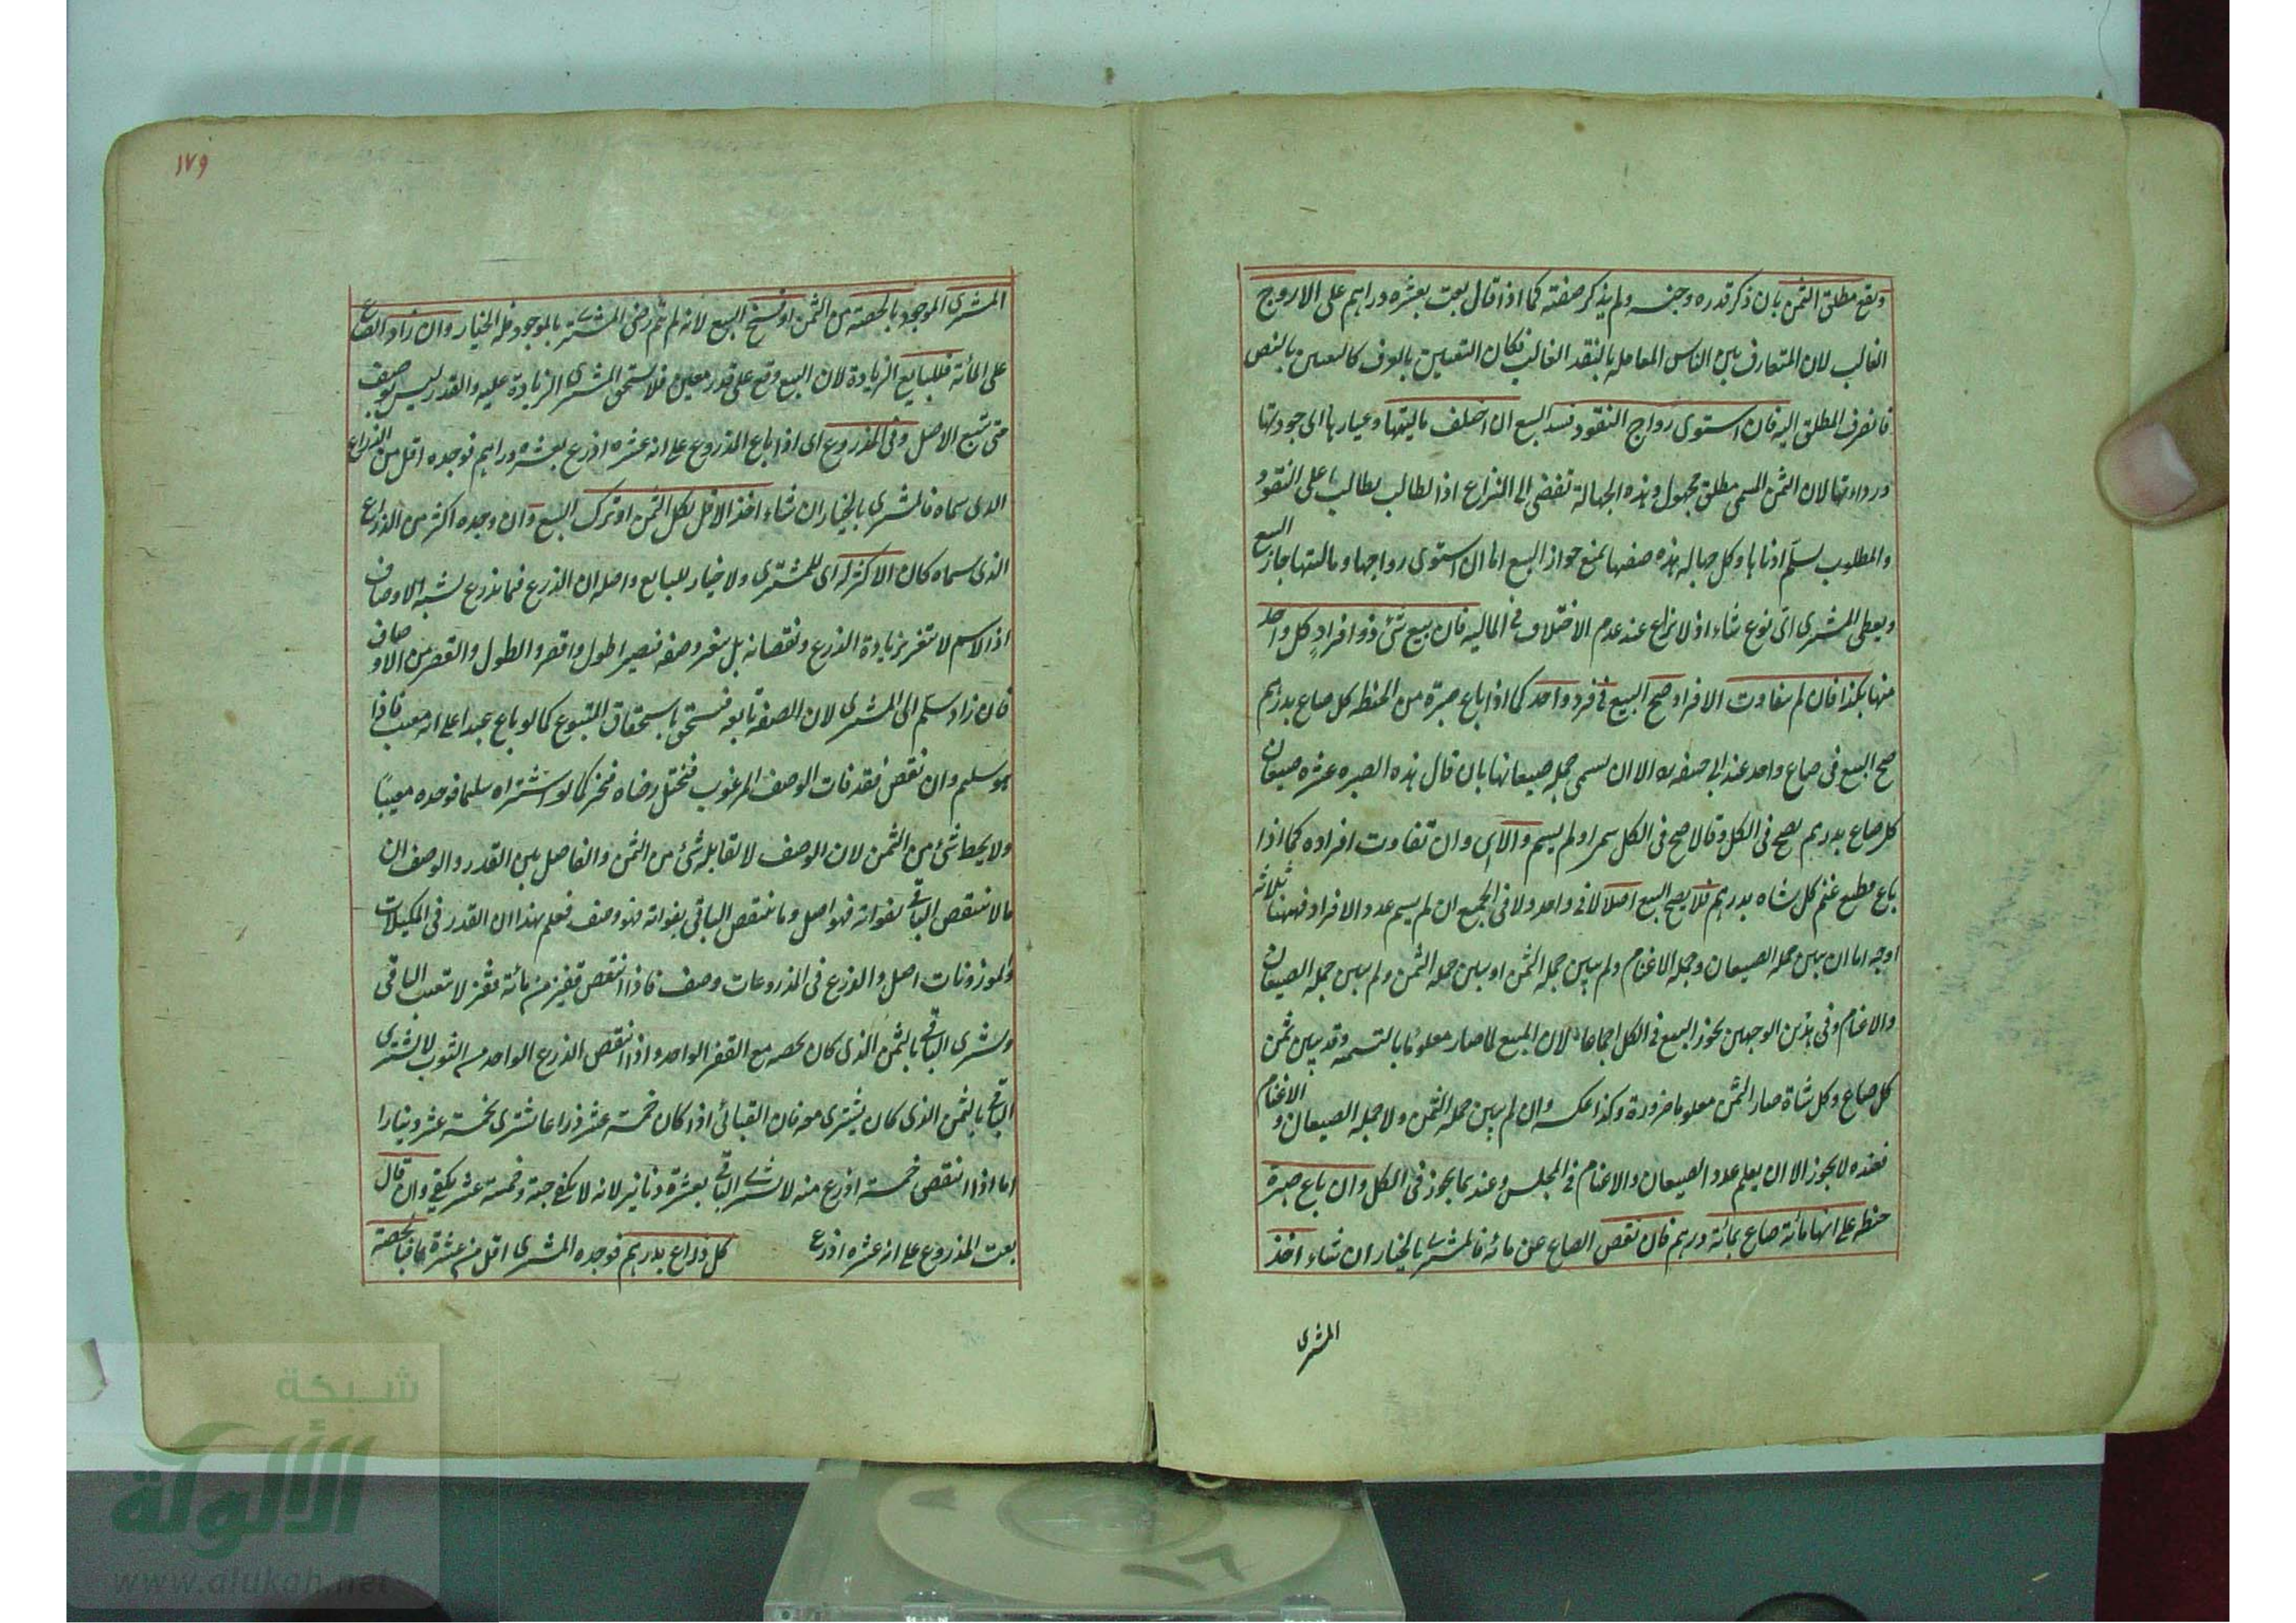 ويقع مطلق الثمن بان ذكر قدره وجنسه ولم يذكر صفته كما اذا قال بعت بعشره دراهم على الاروج
الغالب لان المتعارف بين الناس المعامله بالنقد الغالب فكان التعيين بالعرف كالتعيين بالنص
فانصرف المطلق اليه فان استوى رواج النقود فسد البيع ان اختلف ماليتها وعيارها الى جودتها
ورداءتها لان الثمن المسمى مطلق مجهول وهذه الجهالة تفضى الى النزاع اذ الطالب يطالب على النقود
والمطلوب يسلم ادناها وكل جهاله هذه صفتها يمنع جواز البيع اما ان استوى رواجها وماليتها جاز البيع
ويعطى المشترى اى نوع شاء اذ لا نزاع عند عدم الاختلاف فى الماليه فان بيع شئ ذو افراد كل واحد
منها بكذا فان لم يتفاوت الافراد صح البيع فى فرد واحد كما اذا باع صبرة من الحنطه كل صاع بدرهم
صح البيع فى صاع واحد عند ابى حنيفه الا ان يسمى جمله صيعانها بان قال هذه الصبره عشره صيعان
كل صاع بدرهم يصح فى الكل وقالا صح فى الكل سمى او لم يسم والا اى وان تفاوت افراده كما اذا
باع قطيع غنم كل شاه بدرهم فلا يصح البيع اصلا لا فى واحد ولا فى الجميع ان لم يسم عدد الافراد فههنا ثلاثة
اوجه اما ان يبين جمله الصيعان وجمله الاغنام ولم يبين جمله الثمن او يبين جمله الثمن ولم يبين جمله الصيعان
والاغنام وفى هذين الوجهين يجوز البيع فى الكل اجماعا لان المبيع لما صار معلوما بالتسميه وقد بين ثمن
كل صاع وكل شاة صار الثمن معلوما ضرورة وكذا عكسه وان لم يبين جمله الثمن ولا جمله الصيعان و الاغنام
فعنده لا يجوز الا ان يعلم عدد الصيعان والاغنام فى المجلس وعندهما يجوز فى الكل وان باع صبرة
حنطه على انها مائة صاع بمائة درهم فان نقص الصاع عن مائه فالمشترى بالخيار ان شاء اخذ
المشترى
١٧٩
المشترى الموجود بالحصة من الثمن او فسخ البيع لانه لم يتم رضى المشترى بالموجود فله الخيار وان زاد الصاع
على المائة فللبايع الزيادة لان البيع وقع على قدر معين فلا يستحق المشترى الزيادة عليه والقدر ليس بوصف
حتى يتبع الاصل وفى المذروع اى اذا باع المذروع على انه عشره اذرع بعشره دراهم فوجده اقل من الذراع
الذى سماه فالمشترى بالخيار ان شاء اخذ الاقل بكل الثمن او ترك البيع وان وجده اكثر من الذراع
الذى سماه كان الاكثر له اى للمشترى ولا خيار للبايع واصله ان الذرع فيما يذرع يشبه الاوصاف
اذ الاسم لا يتغير بزيادة الذرع ونقصانه بل يتغير وصفه فيصير اطول واقصر والطول والقصر من الاوصاف
فان زاد سلم الى المشترى لان الصفه تابعه فتستحق باستحقاق المتبوع كما لو باع عبدا على انه معيب فاذا
هو سليم وان نقص فقد فات الوصف المرغوب فيختل رضاه فيخير كما لو اشتراه سليما فوجده معيبا
ولا يحط شئ من الثمن لان الوصف لا تقابله شئ من الثمن والفاصل بين القدر والوصف ان
مالا ينتقص الباقى بفواته فهو اصل وما ينتقص الباقى بفواته فهو وصف فعلم بهذا ان القدر فى المكيلات
والموزونات اصل والذرع فى المذروعات وصف فاذا انتقص قفيز من مائة قفيز لا يتعيب الباقى
ويشترى الباقى بالثمن الذى كان بحصه مع القفيز الواحد واذا انتقص الذرع الواحد من الثوب لا يشترى
الباقى بالثمن الذى كان يشترى معه فان القبائى اذا كان خمسة عشر ذراعا يشترى بخمسة عشر دينارا
اما اذا انتقص خمسة اذرع منه لا يشترى الباقى بعشرة دنانير لانه لا يكفى جبة وخمسة عشر يكفى وان قال
بعت المذروع على انه عشره اذرع كل ذراع بدرهم فوجده المشترى اقل من عشرة بالحصة
شبكة
الألوكة
www.alukah.net